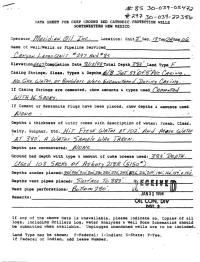 #85 30-039-05472
#297 30-039-22356
DATA SHEET FOR DEEP GROUND BED CATHODIC PROTECTION WELLS
NORTHWESTERN NEW MEXICO
Operator Meridian Oil Inc. Location: Unit Sec. Twp Rng
Name of Well/Wells or Pipeline Serviced
Canyon Largo Unit #297 And #85
Elevation Completion Date Total Depth 393' Land Type F
Casing Strings, Sizes, Types & Depths
No Gas, Water, or Boulders Were Encountered During Casing.
If Casing Strings are cemented, show amounts & types used Cemented
With
If Cement or Bentonite Plugs have been placed, show depths & amounts used
None
Depths & thickness of water zones with description of water: Fresh, Clear,
Salty, Sulphur, Etc. Hit Fresh Water At And More Water
At A Water Sample Was Taken.
Depths gas encountered: None
Ground bed depth with type & amount of coke breeze used: 393' Depth.
Used 103 Sacks of Asbury 218R
Depths anodes placed:
Depths vent pipes placed: Surface To 393'
Vent pipe perforations: Bottom 280'
Remarks:
RECEIVED
JAN 31
OIL CON. DIV
DIST. 3
If any of the above data is unavailable, please indicate so. Copies of all
logs, including Drillers Log, Water Analyses & Well Bore Schematics should
be submitted when available. Unplugged abandoned wells are to be included.
Land Type may be shown: F-Federal; I-Indian; S-State; P-Fee.
If Federal or Indian, add Lease Number.